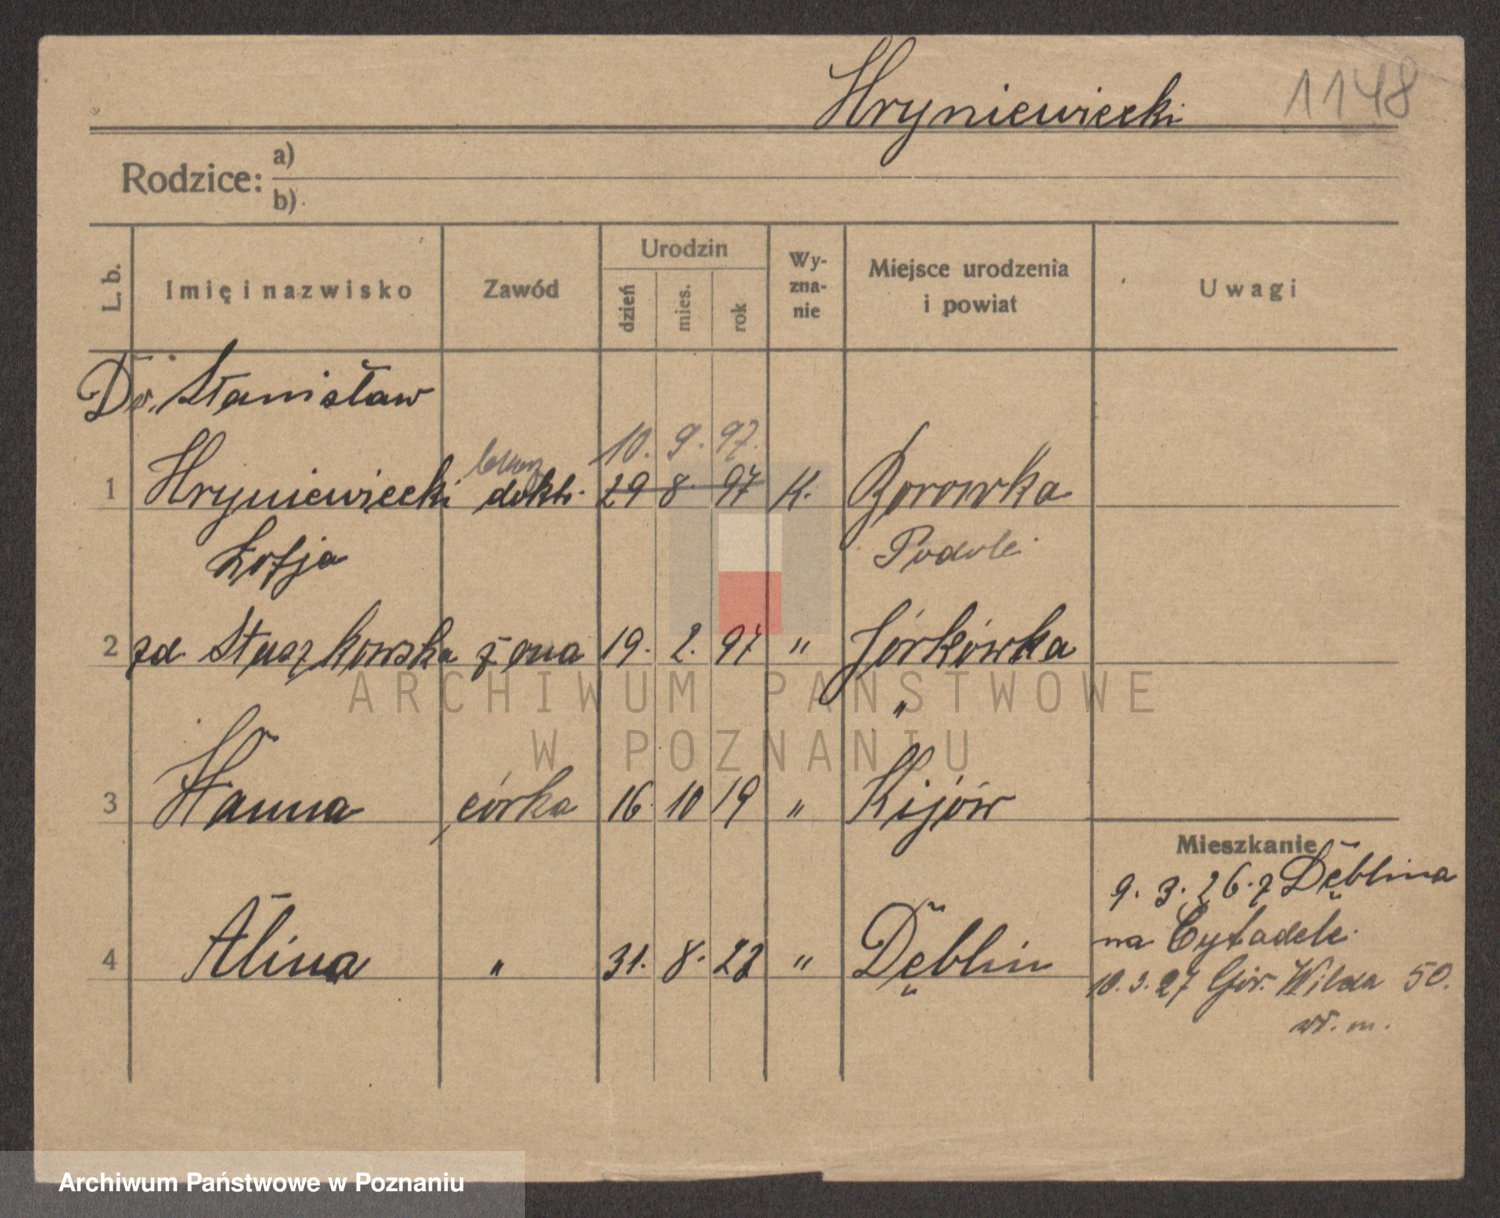 Hryniewiecki 1148
Rodzice: a)
b)
L. b. Imię i nazwisko Zawód Urodzin dzień mies. rok Wyznanie Miejsce urodzenia i powiat Uwagi
Dr. Stanisław
10. 9. 97.
1 Hryniewiecki lekarz dokt. 29 8. 97 K. Borowka
Zofja Podole
2 zd. Staszkowska żona 19. 2. 97 " Jórkówka
"
ARCHIWUM PAŃSTWOWE
W POZNANIU
3 Hanna córka 16 10 19 " Kijów
Mieszkanie
9. 3. 26. z Dęblina
na Cytadele.
4 Alina " 31. 8. 22 " Dęblin
10. 3. 27 Gór. Wilda 50.
w. m.
Archiwum Państwowe w Poznaniu